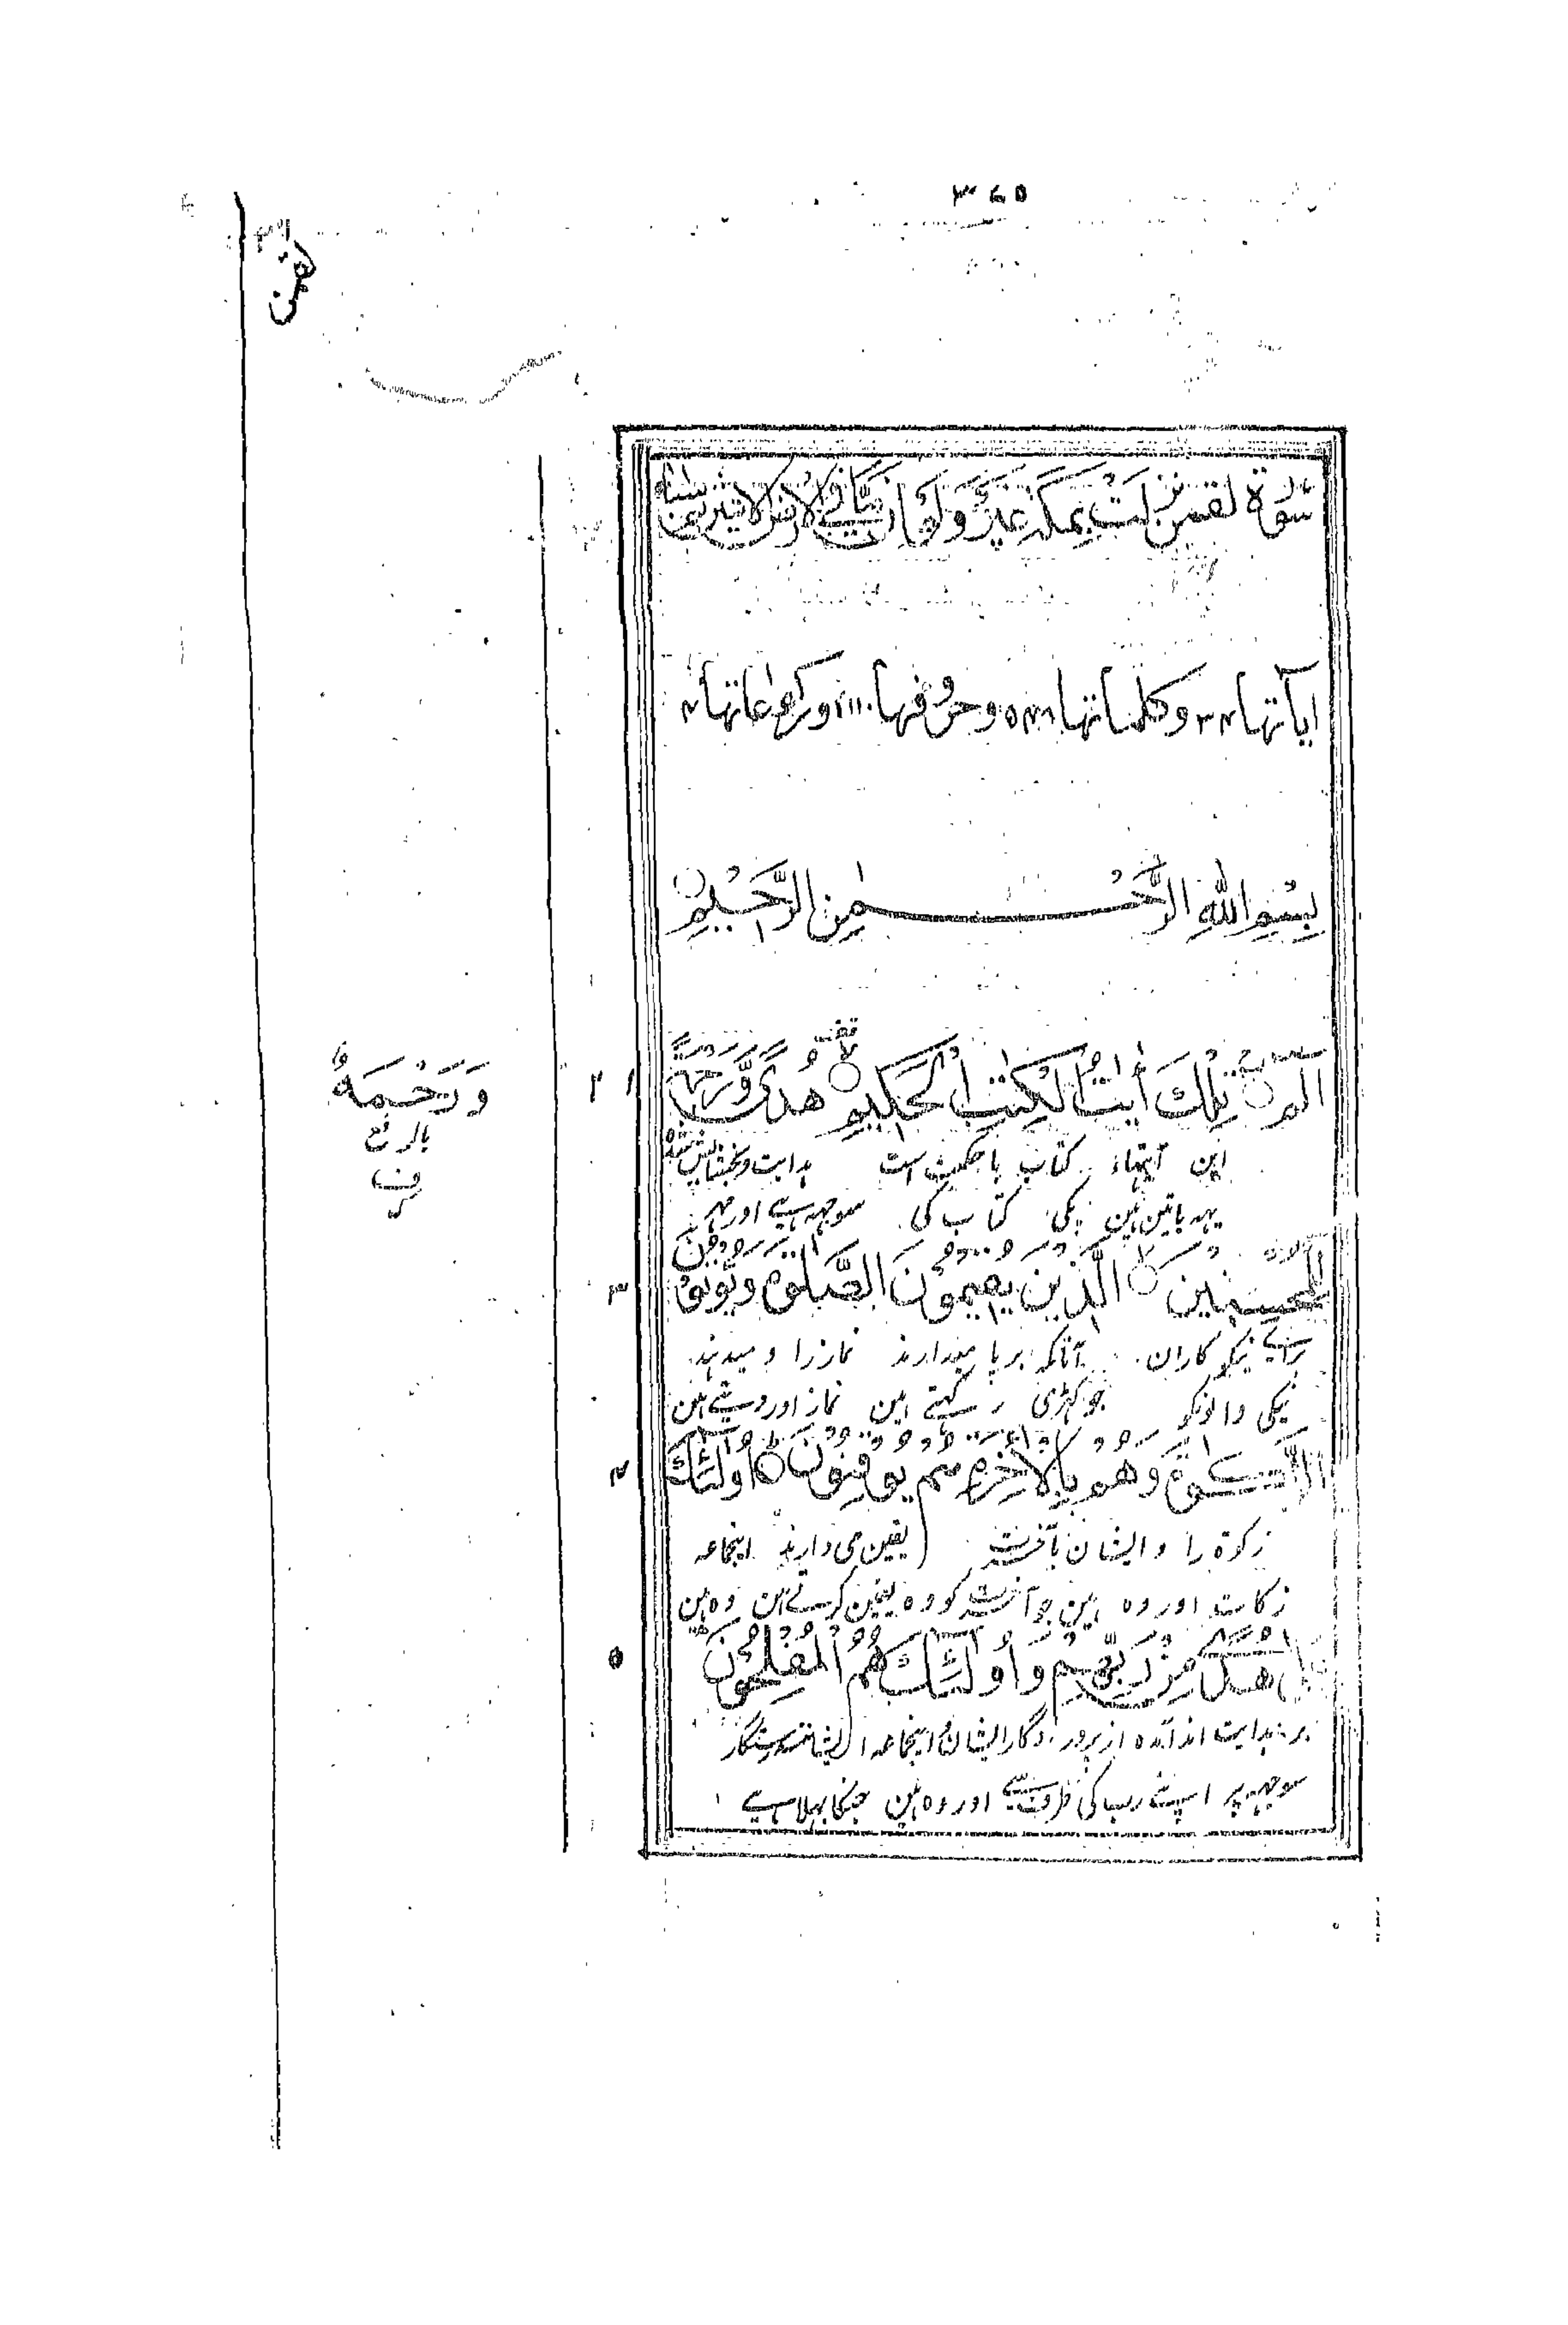 ۳۶۵
۳۱
لقمن
سورة لقمن نزلت بمكة غير ولو ان ما فى الارض
اياتها ۳۴ وكلماتها ۵۴۸ وحروفها ۲۱۱۰ وركوعاتها ۴
بِسْمِ اللهِ الرَّحْمٰنِ الرَّحِيْمِ
الٓمّٓ تِلْكَ اٰيٰتُ الْكِتٰبِ الْحَكِيْمِ هُدًى وَّرَحْمَةً
۱ ۲
وَرَحْمَةٌ
بالرفع
ف
این آیتهاء کتاب با حکمت است هدایت و بخشایش
یہہ باتین ہین پکی کتاب کی سوجہہ ہے اور مہر
لِّلْمُحْسِنِيْنَ الَّذِيْنَ يُقِيْمُوْنَ الصَّلٰوةَ وَيُؤْتُوْنَ
۳
براے نیکو کاران آنانکہ برپا میدارند نماز را و میدہند
نیکی والونکو جو کہڑی رکہتے ہین نماز اور دیتے ہین
الزَّكٰوةَ وَهُمْ بِالْاٰخِرَةِ هُمْ يُوْقِنُوْنَ اُولٰٓئِكَ
۴
زکوة را و ایشان بآخرت یقین می دارند اینجماعہ
زکات اور وہ ہین جو آخرت کو وہ یقین کرتے ہین وہ ہین
عَلٰى هُدًى مِّنْ رَّبِّهِمْ وَاُولٰٓئِكَ هُمُ الْمُفْلِحُوْنَ
۵
بر ہدایت اند آمدہ از پروردگار ایشان و اینجماعہ ایشانند رستگار
سوجہہ پر اپنے رب کی طرف سے اور وہ ہین جنکا بہلا ہے